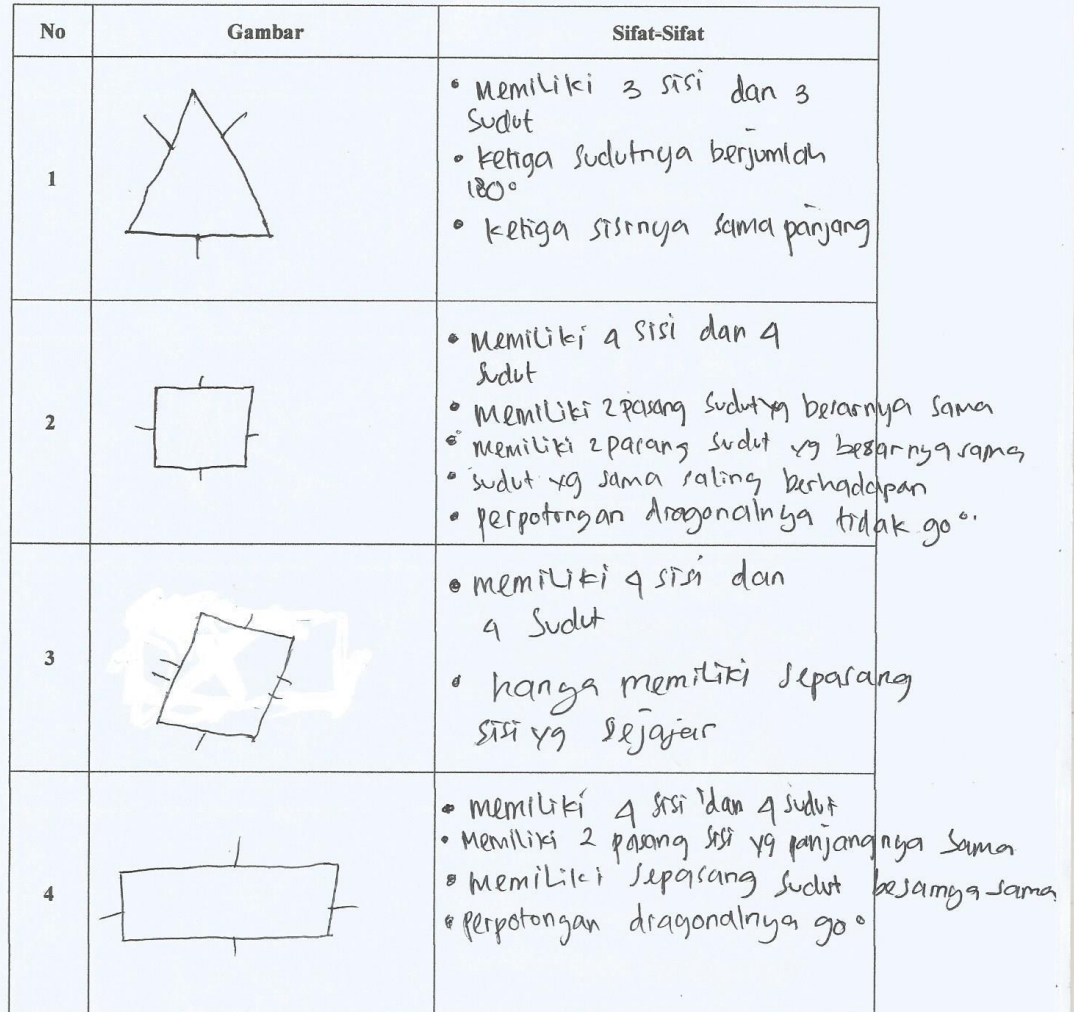 No Gambar Sifat-Sifat
1
• Memiliki 3 sisi dan 3
Sudut
• ketiga sudutnya berjumlah
180°
• ketiga sisinya sama panjang
2
• Memiliki 4 sisi dan 4
sudut
• Memiliki 2 pasang sudut yg besarnya sama
• memiliki 2 pasang sudut yg besarnya sama
• sudut yg sama saling berhadapan
• perpotongan diagonalnya tidak 90°
3
• memiliki 4 sisi dan
4 sudut
• hanya memiliki sepasang
sisi yg sejajar
4
• memiliki 4 sisi dan 4 sudut
• Memiliki 2 pasang sisi yg panjangnya sama
• memiliki sepasang sudut besarnya sama
• perpotongan diagonalnya 90°